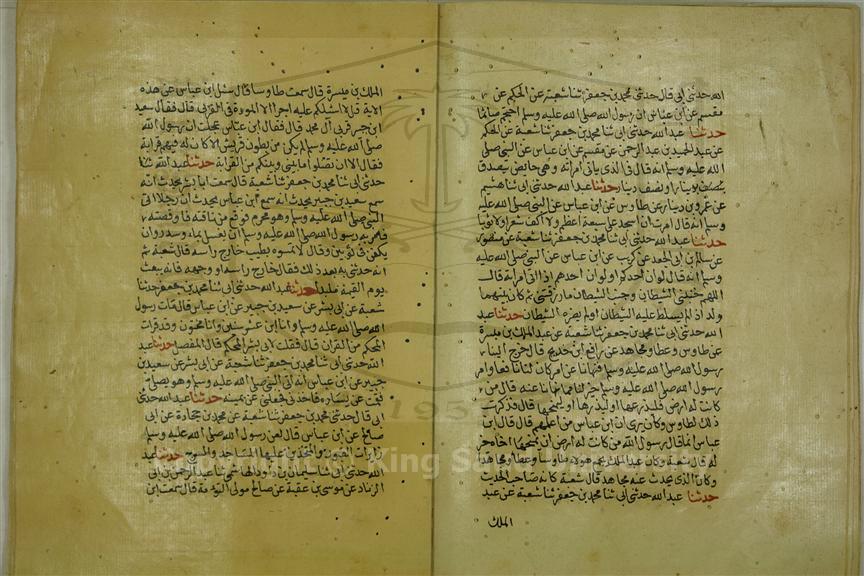 الله حدثني ابي قال حدثني محمد بن جعفر ثنا شعبة عن الحكم عن
مقسم عن ابن عباس ان رسول الله صلى الله عليه وسلم احتجم صائما
حدثنا عبد الله حدثني ابي ثنا محمد بن جعفر ثنا شعبة عن الحكم
عن عبد الحميد بن عبد الرحمن عن مقسم عن ابن عباس عن النبي صلى
الله عليه وسلم انه قال في الذي ياتي امراته وهي حايض يتصدق
بدينار او نصف دينار حدثنا عبد الله حدثني ابي ثنا هشيم
عن عمرو بن دينار عن طاوس عن ابن عباس عن النبي صلى الله عليه
وسلم انه قال امرت ان اسجد على سبعة اعظم ولا اكف شعرا ولا ثوبا
حدثنا عبد الله حدثني ابي ثنا محمد بن جعفر ثنا شعبة عن منصور
عن سالم بن ابي الجعد عن كريب عن ابن عباس عن النبي صلى الله عليه
وسلم انه قال لو ان احدكم او لو ان احدهم اذا اتى امراته قال
اللهم جنبني الشيطان وجنب الشيطان ما رزقتني ثم كان بينهما
ولد الا لم يسلط عليه الشيطان او لم يضره الشيطان حدثنا عبد
الله حدثني ابي ثنا محمد بن جعفر ثنا شعبة عن عبد الملك بن ميسرة
عن طاوس وعطا ومجاهد عن رافع بن خديج قال خرج الينا
رسول الله صلى الله عليه وسلم فنهانا عن امر كان لنا نافعا وامر
رسول الله صلى الله عليه وسلم خير لنا مما نهانا عنه قال من
كانت له ارض فليزرعها او ليذرها او ليمنحها قال فذكرت
ذلك لطاوس وكان يرى ان ابن عباس من اعلمهم قال قال ابن
عباس انما قال رسول الله من كانت له ارض ان يمنحها اخاه خير
له قال شعبة وكان عبد الملك يجمع هولاء طاوسا وعطا ومجاهدا
وكان الذي يحدث عنه مجاهد قال شعبة كانه صاحب الحديث
حدثنا عبد الله حدثني ابي ثنا محمد بن جعفر ثنا شعبة عن عبد
الملك
الملك بن ميسرة قال سمعت طاوسا قال سئل ابن عباس عن هذه
الاية قل لا اسئلكم عليه اجرا الا المودة في القربى قال فقال سعيد
ابن جبير قربى آل محمد قال فقال ابن عباس عجلت ان رسول الله
صلى الله عليه وسلم لم يكن من بطون قريش الا كان له فيهم قرابة
فقال الا ان تصلوا ما بيني وبينكم من القرابة حدثنا عبد الله ثنا
حدثني ابي ثنا محمد بن جعفر ثنا شعبة قال سمعت ابا بشر يحدث انه
سمع سعيد بن جبير يحدث انه سمع ابن عباس يحدث ان رجلا اتى
النبي صلى الله عليه وسلم وهو محرم فوقع من ناقته فاوقصته
فامر به رسول الله صلى الله عليه وسلم ان يغسل بماء وسدر وان
يكفن في ثوبين وقال لا تمسوه بطيب خارج راسه قال شعبة ثم
انه حدثني به بعد ذلك فقال خارج راسه او وجهه فانه يبعث
يوم القيمة ملبدا حدثنا عبد الله حدثني ابي ثنا محمد بن جعفر حدثنا
شعبة عن ابي بشر عن سعيد بن جبير عن ابن عباس قال مات رسول
الله صلى الله عليه وسلم وانا ابن عشر سنين وانا مختون وقد قرات
المحكم من القران قال فقلت لابي بشر ما المحكم قال المفصل حدثنا عبد
الله حدثني ابي ثنا محمد بن جعفر ثنا شعبة عن ابي بشر عن سعيد بن
جبير عن ابن عباس انه اتى النبي صلى الله عليه وسلم وهو يصلي
فقمت عن يساره فاخذني فجعلني عن يمينه حدثنا عبد الله حدثني
ابي قال حدثني محمد بن جعفر ثنا شعبة عن محمد بن جحادة عن ابي
صالح عن ابن عباس قال لعن رسول الله صلى الله عليه وسلم
زايرات القبور والمتخذين عليها المساجد والسرج حدثنا عبد
الله حدثني ابي ثنا سليمان بن داود الهاشمي ثنا عبد الرحمن بن ابي
الزناد عن موسى بن عقبة عن صالح مولى التومة قال سمعت ابن